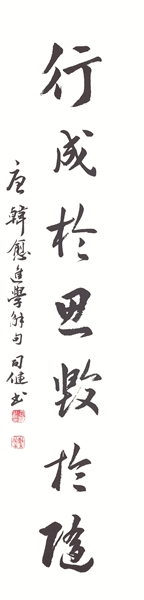 行成於思毀於隨
唐韓愈進學解句司健書